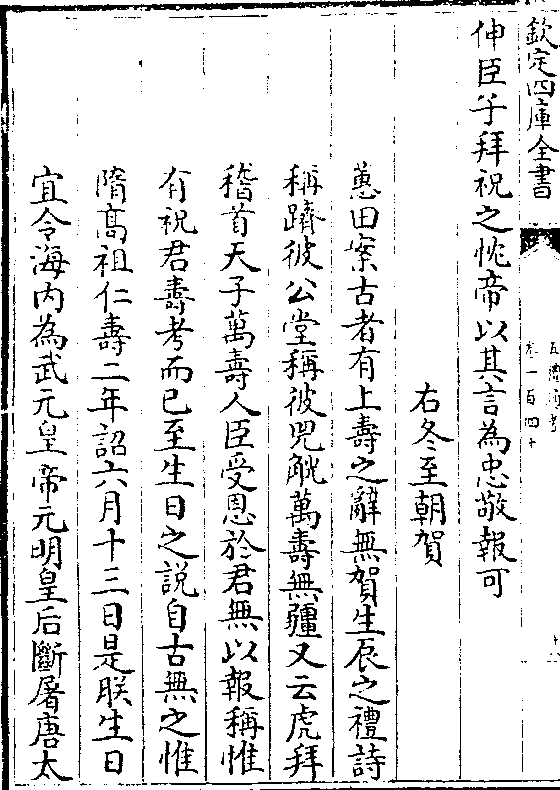 欽定四庫全書
五禮通考
卷一百四十
伸臣子拜祝之忱帝以其言為忠敬報可
右冬至朝賀
蕙田案古者有上壽之辭無賀生辰之禮詩
稱躋彼公堂稱彼兕觥萬壽無疆又云虎拜
稽首天子萬壽人臣受恩於君無以報稱惟
有祝君壽考而已至生日之説自古無之惟
隋髙祖仁壽二年詔六月十三日是朕生日
宜令海内為武元皇帝元明皇后斷屠唐太